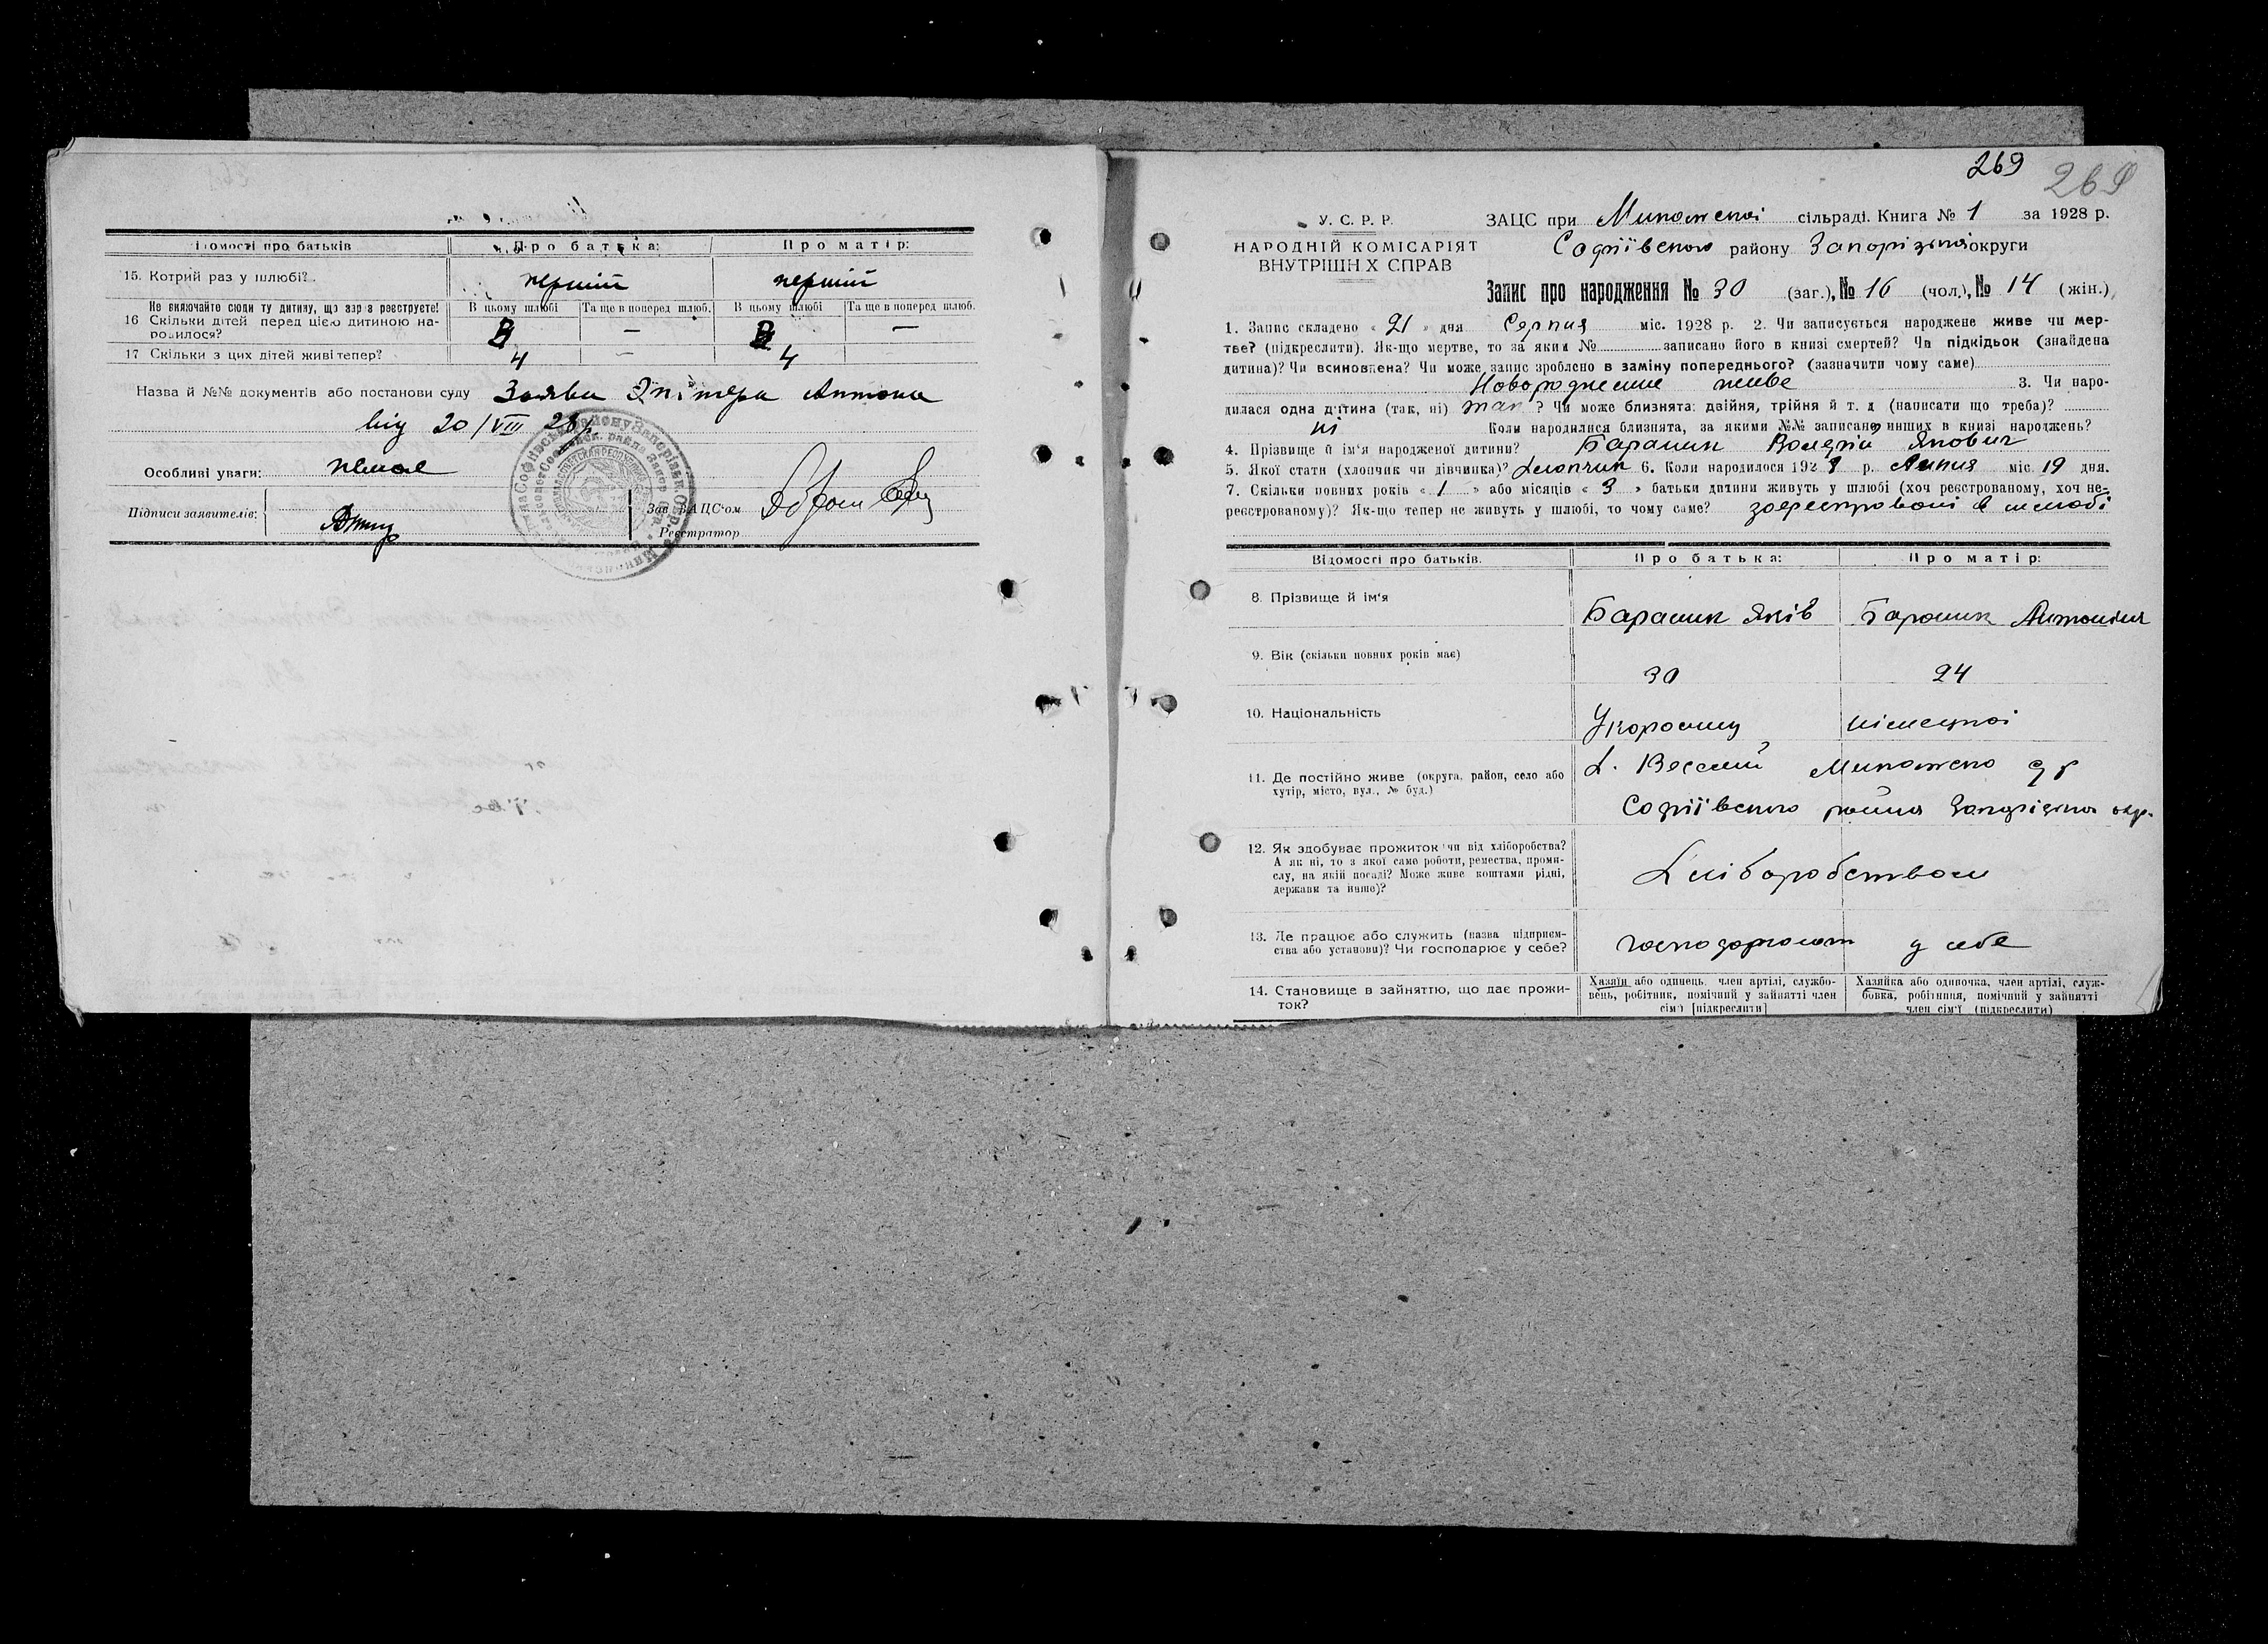 Відомості про батьків Про батька: Про матір:
15. Котрий раз у шлюбі? перший перший
Не включайте сюди ту дитину, що зараз реєструєте! В цьому шлюбі Та ще в поперед шлюб. В цьому шлюбі Та ще в поперед шлюб.
16 Скільки дітей перед цією дитиною на-
родилося? — —
17 Скільки з цих дітей живі тепер? 4 — 4
Назва й №№ документів або постанови суду Заява Антона
від 20/VIII 28 р.
Особливі уваги: немає
Підписи заявителів: Зав. ЗАЦС'ом
Реєстратор
269 269
У. С. Р. Р. ЗАЦС при сільраді. Книга № 1 за 1928 р.
НАРОДНІЙ КОМІСАРІЯТ Софіївського району Запорізької округи
ВНУТРІШНІХ СПРАВ
Запис про народження № 30 (заг.), № 16 (чол.), № 14 (жін.)
1. Запис складено « 21 » дня Серпня міс. 1928 р. 2. Чи записується народжене живе чи мер-
тве? (підкреслити). Як-що мертве, то за яким № записано його в книзі смертей? Чи підкідьок (знайдена
дитина)? Чи всиновлена? Чи може запис зроблено в заміну попереднього? (зазначити чому саме)
Новороджение живе 3. Чи наро-
дилася одна дитина (так, ні) так ? Чи може близнята: двійня, трійня й т. д (написати що треба)?
ні Коли народилися близнята, за якими №№ записано инших в книзі народжень?
4. Прізвище й ім'я народженої дитини? Барашик Якович
5. Якої стати (хлопчик чи дівчинка)? хлопчик 6. Коли народилося 1928 р. Липня міс. 19 дня.
7. Скільки повних років « 1 » або місяців « 3 » батьки дитини живуть у шлюбі (хоч реєстрованому, хоч не-
реєстрованому)? Як-що тепер не живуть у шлюбі, то чому саме? зареєстровані в шлюбі
Відомості про батьків. Про батька: Про матір:
8. Прізвище й ім'я Барашик Яків Барашик Антоніна
9. Вік (скільки повних років має) 30 24
10. Національність німецької
11. Де постійно живе (округа, район, село або
хутір, місто, вул., № буд.) х. Веселий
Софіївського района Запорізька окр.
12. Як здобуває прожиток чи від хліборобства?
А як ні, то з якої саме роботи, ремества, проми-
слу, на якій посаді? Може живе коштами рідні,
держави та инше)? Хліборобством
13. Де працює або служить (назва підприєм-
ства або установи)? Чи господарює у себе? господарюют у себе
14. Становище в зайняттю, що дає прожи-
ток?
Хазяїн або одинець, член артілі, службо-
вець, робітник, помічний у зайнятті член
сім'ї [підкреслити]
Хазяйка або одиночка, член артілі, служ-
бовка, робітниця, помічний у зайнятті
член сім'ї (підкреслити)